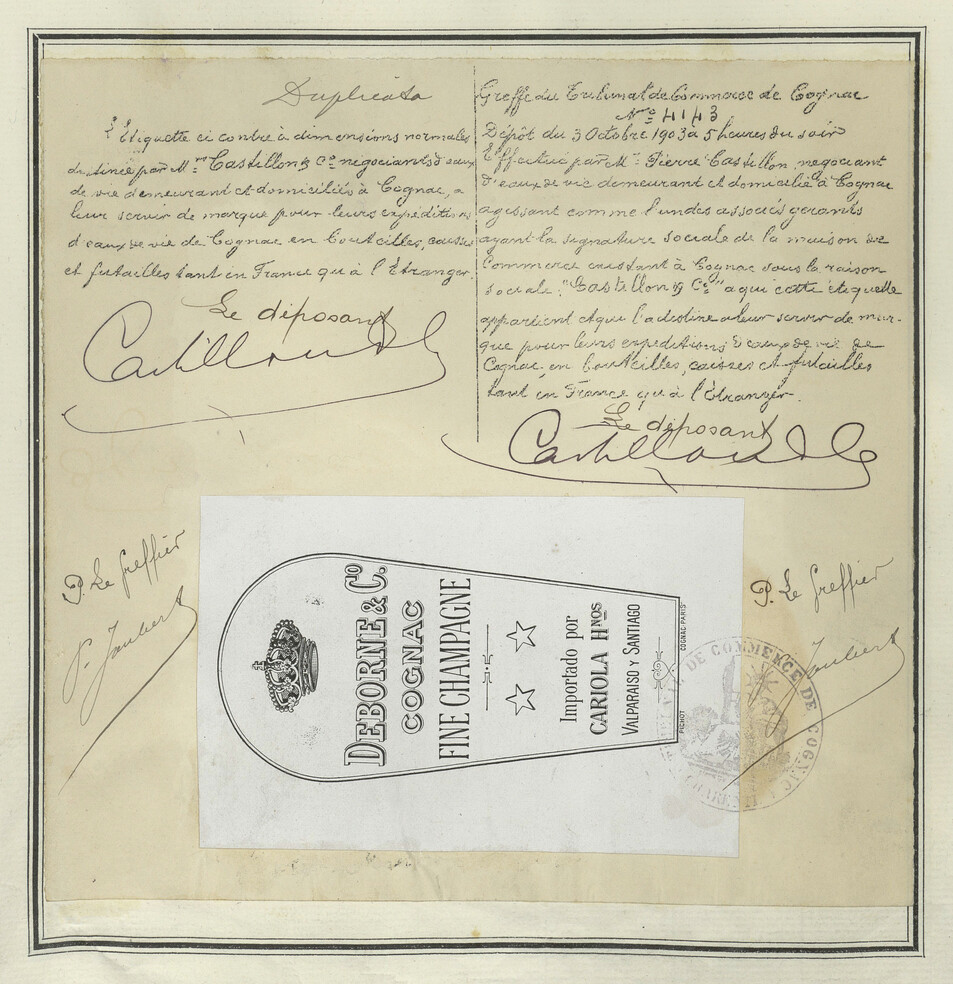 Duplicata
L'Etiquette ci contre à dimensions normales
destinée par M.rs Castillon & Co négociants d'eaux
de vie demeurant et domiciliés à Cognac, a
leur servir de marque pour leurs expéditions
d'eaux de vie de Cognac en bouteilles, caisses
et futailles tant en France qu'à l'Étranger.
Le déposant
Castillon & Co
Greffe du Tribunal de Commerce de Cognac
No 4143
Dépôt du 3 Octobre 1903 à 5 heures du soir
Effectué par Mr Pierre Castillon, négociant
d'eaux de vie demeurant et domicilié à Cognac
agissant comme l'un des associés gérants
ayant la signature sociale de la maison de
Commerce existant à Cognac sous la raison
sociale: "Castillon & Co" a qui cette étiquette
appartient et qui l'a destine a leur servir de mar-
que pour leurs expéditions d'eaux de vie de
Cognac, en bouteilles, caisses et futailles
tant en France qu'à l'Étranger.
Le déposant
Castillon & Co
P. Le Greffier
P. Joubert
DEBORNE & Co.
COGNAC
FINE CHAMPAGNE
Importado por
CARIOLA Hnos
VALPARAISO Y SANTIAGO
PICHOT
COGNAC-PARIS
P. Le Greffier
Joubert
DE COMMERCE DE COGNAC